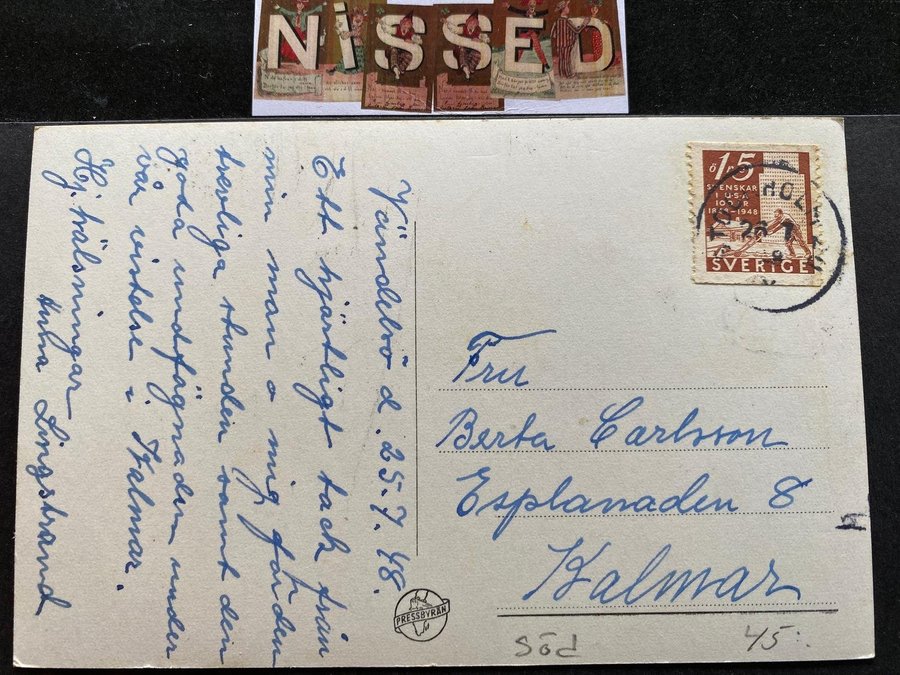 NISSED
Vändelsö d. 25.7.48.
Ett hjärtligt tack från
min man o mig för den
trevliga stunden samt den
goda undfägnaden under
vår vistelse i Kalmar.
Hj. hälsningar
Lingstrand
ÖRE 15
SVENSKAR
I USA
100 ÅR
1848-1948
SVERIGE
STOCKHOLM
26 7
Fru
Berta Carlsson
Esplanaden 8
Kalmar
PRESSBYRÅN
söd
45:-